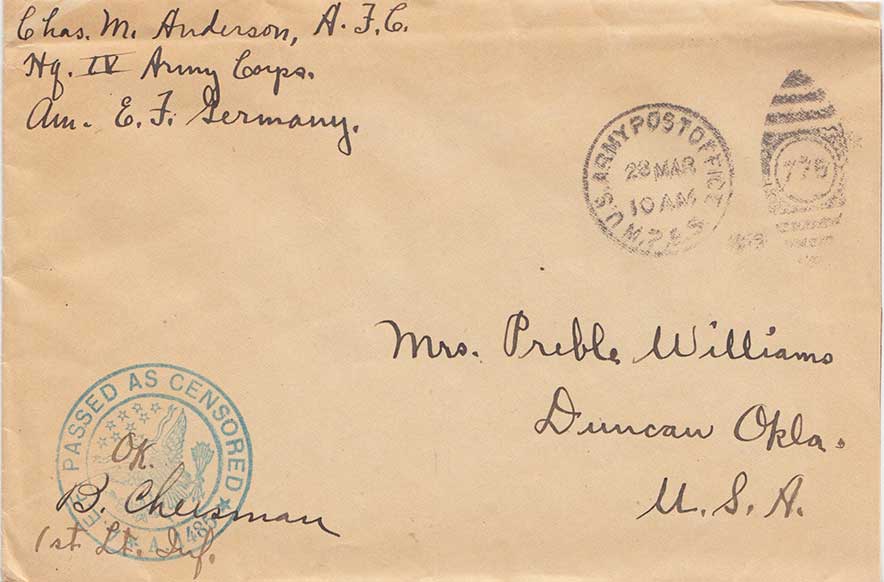 Chas. M. Anderson, A.F.C.
Hq. IV Army Corps.
Am. E. F. Germany.
U.S. ARMY POST OFFICE
28 MAR
10 AM
M.P.E.S.
775
Mrs. Preble Williams
Duncan Okla.
U. S. A.
PASSED AS CENSORED
OK.
B. Cheisman
1st Lt. Inf.